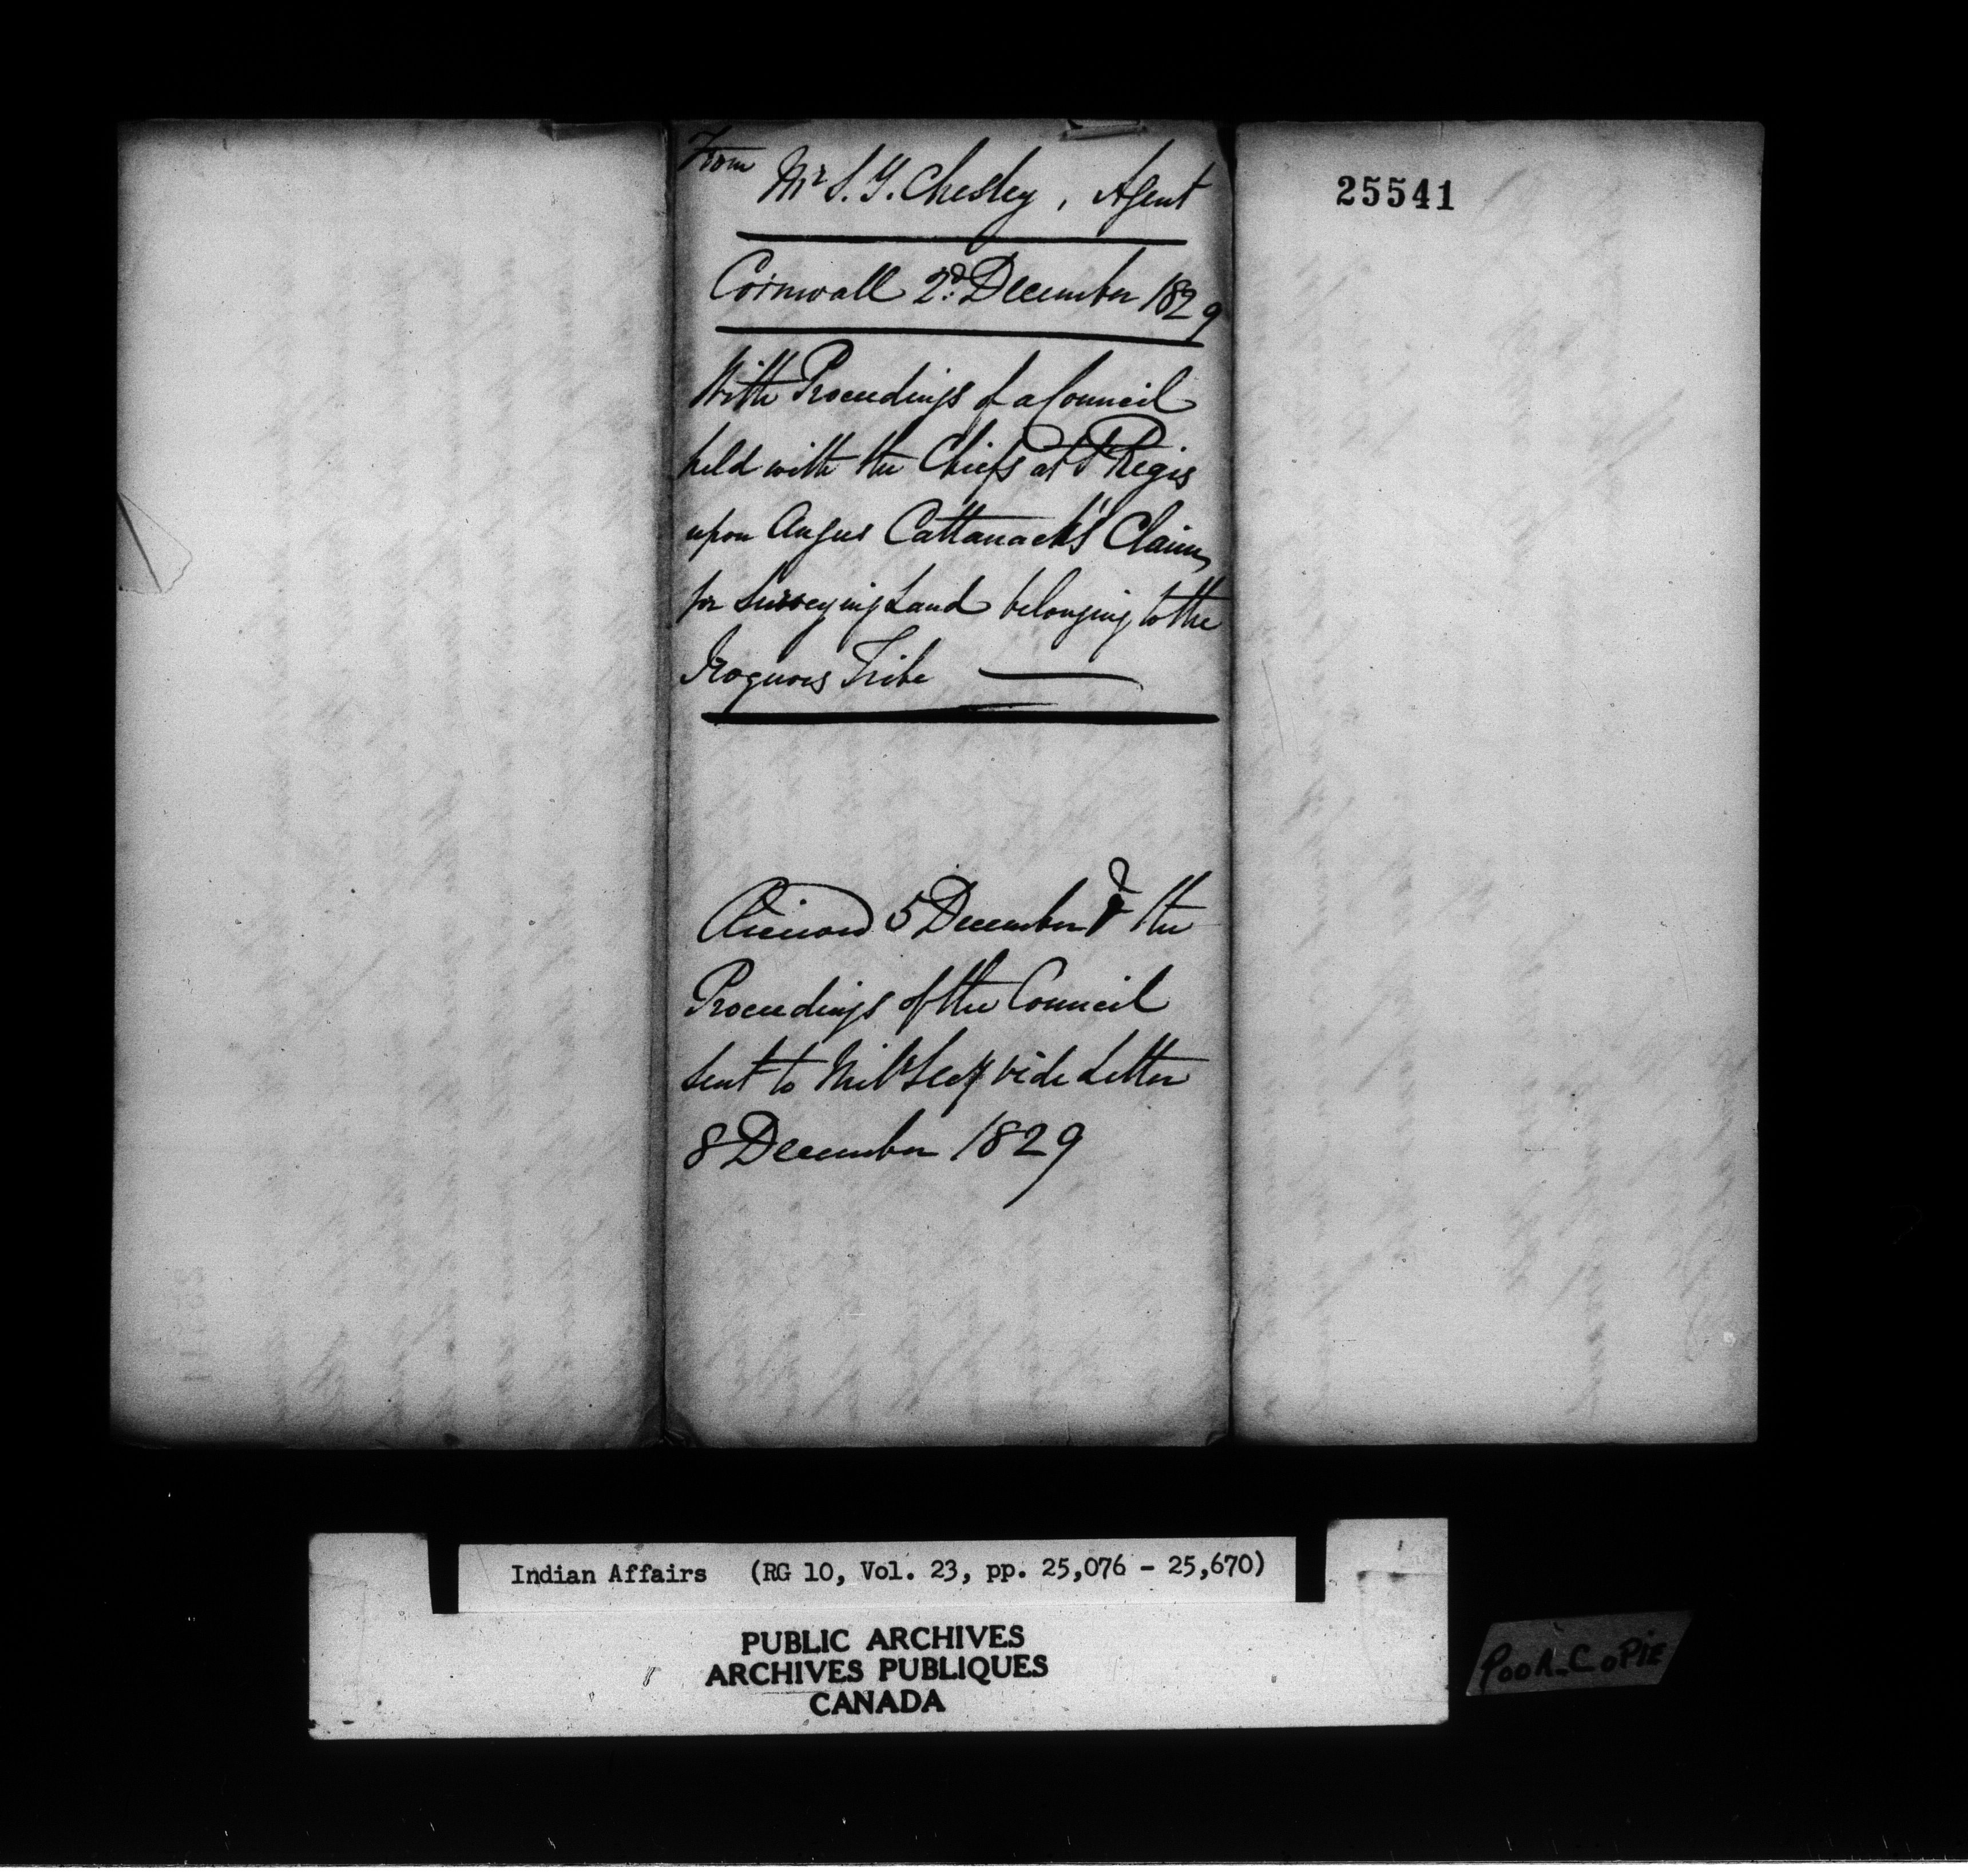 From
Mr S. Y. Chesley, Agent
Cornwall 2d December 1829
With Proceedings of a Council
held with the Chiefs at St Regis
upon Angus Cattanach's Claim
for Surveying Land belonging to the
Iroquois Tribe
Received 5 December & the
Proceedings of the Council
sent to Mily Secy vide Letter
8 December 1829
25541
Indian Affairs (RG 10, Vol. 23, pp. 25,076 - 25,670)
PUBLIC ARCHIVES
ARCHIVES PUBLIQUES
CANADA
POOR_COPIE